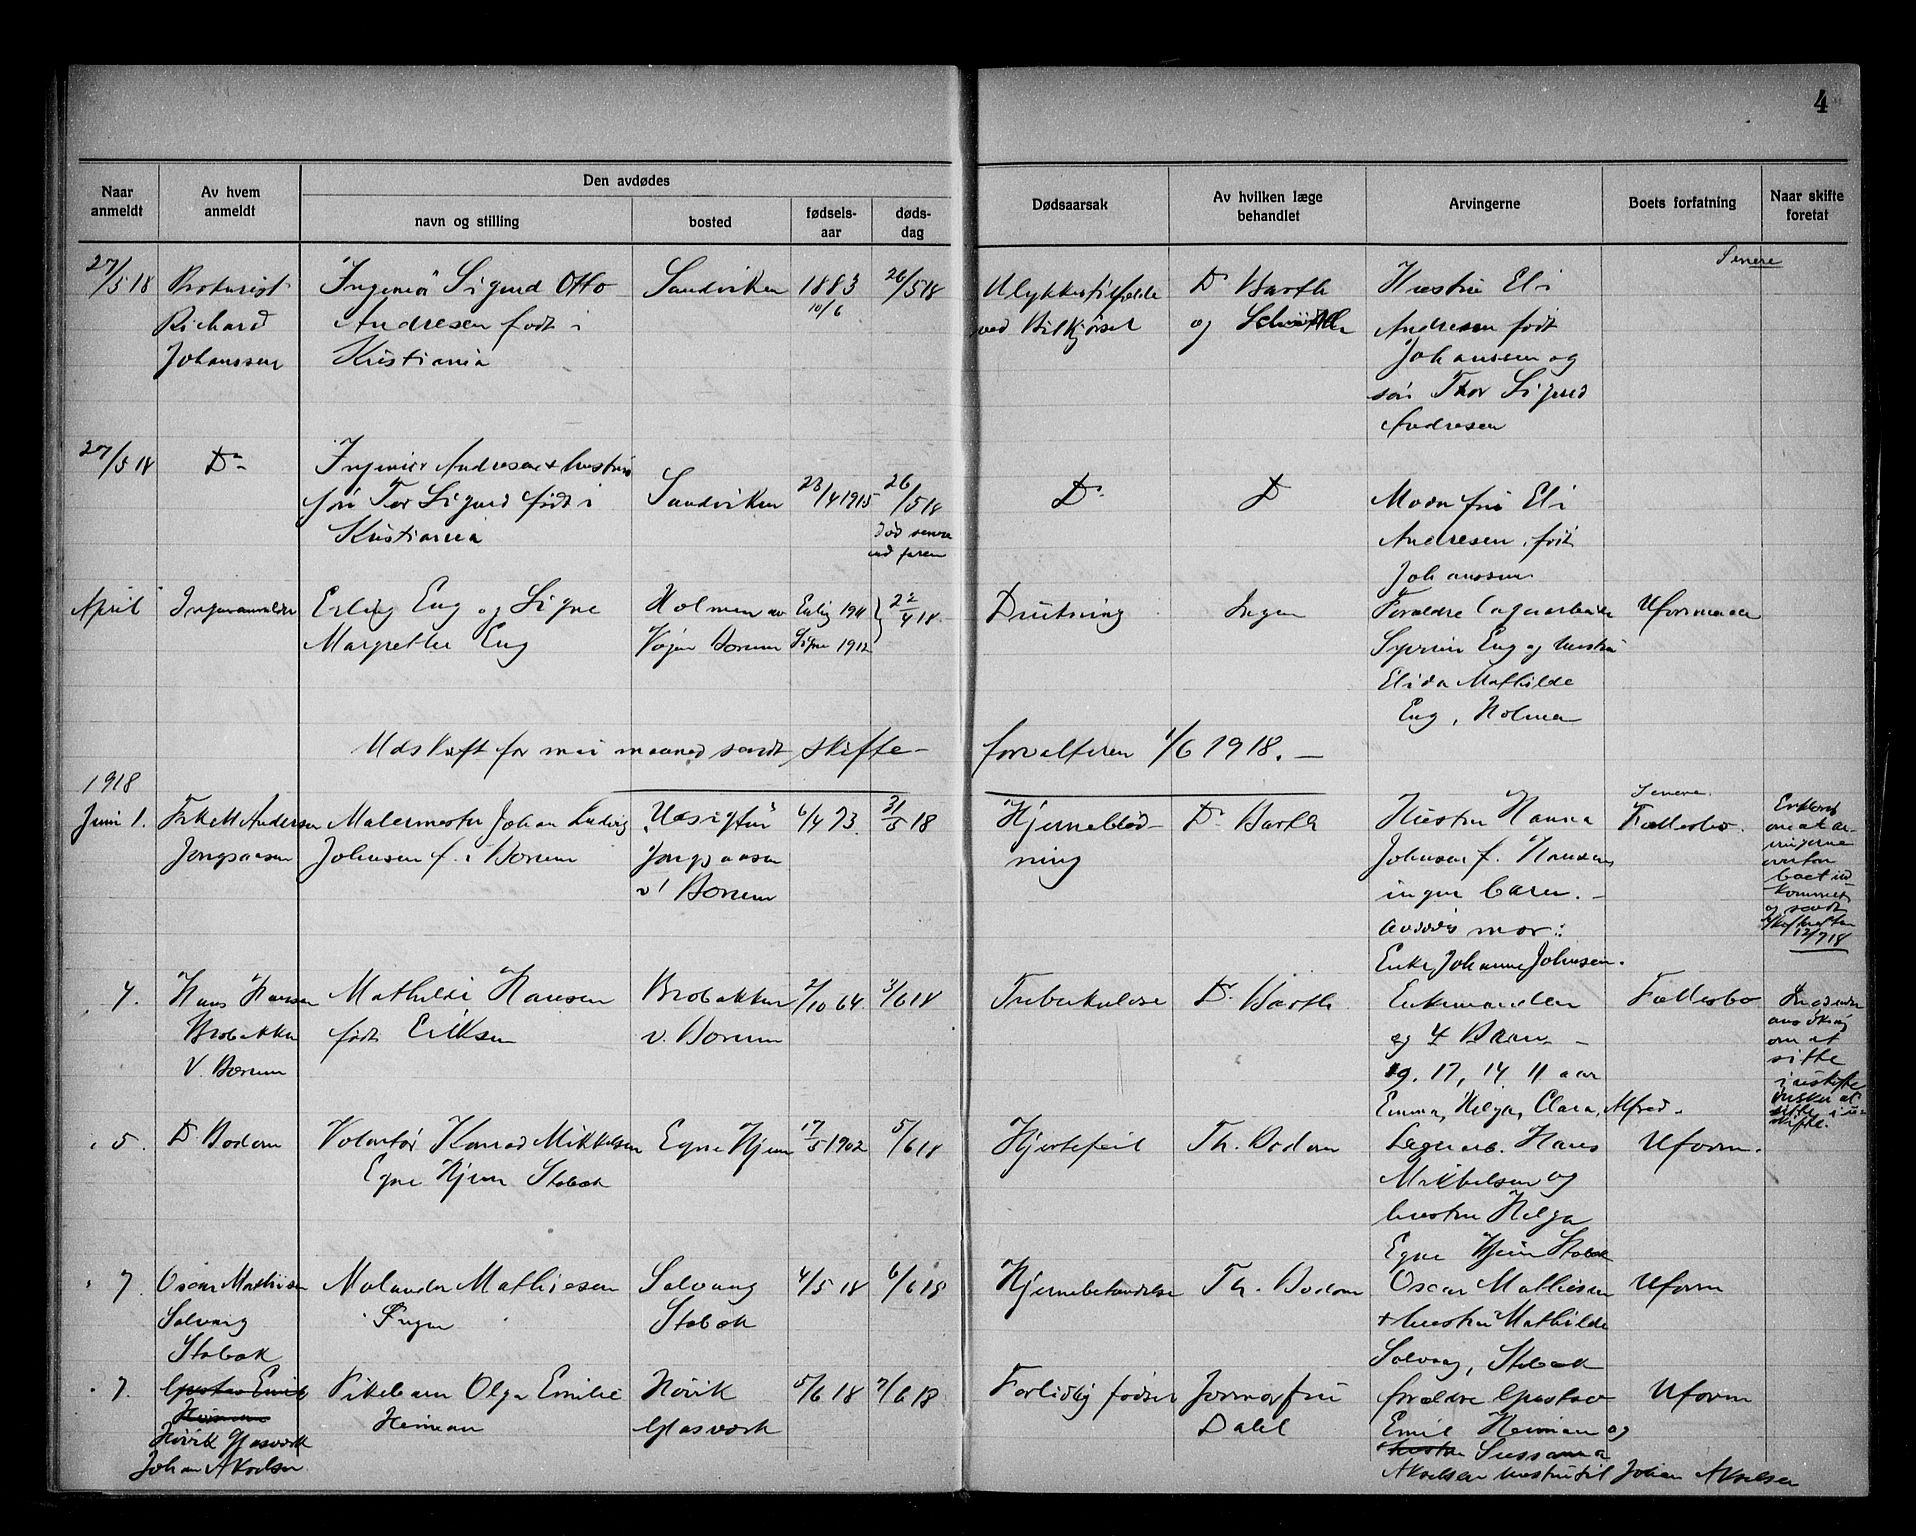 4
Naar anmeldt
Av hvem anmeldt
Den avdødes
navn og stilling
bosted
fødsels-aar
døds-dag
Dødsaarsak
Av hvilken læge behandlet
Arvingerne
Boets forfatning
Naar skifte foretat
27/5 18
Prokurist
Richard
Johanssen
Ingeniør Sigurd Otto
Andresen født i
Kristiania
Sandviken
1883
10/6
26/5 18
Ulykkestilfælde
ved Bilkjørsel
Dr Barth
og
Hustru Eli
Andresen født
Johanssen og
søn Thor Sigurd
Andresen
Senere
27/5 18
Do
Ingeniør Andresen + hustrus
søn Tor Sigurd født i
Kristiania
Sandviken
23/4 1915
26/5 18
død senere
end faren
Do
Do
Moder fru Eli
Andresen, født
Johanssen
April
Ingen anmelder
Erling Eng og Signe
Margrethe Eng
Holmen av
Bærum
Erling 1911
Signe 1912
22/4 18.
Drukning
Ingen
Forældre
Eng og hustru
Elida Mathilde
Eng, Holmen
Uformuende
Utskrift for mai maaned sendt skifte-
forvalteren 1/6 1918. —
1918
Juni 1.
Andersen
Jongsaasen
Malermester Johan Ludvig
Johnsen f. i Bærum
"Utsigten"
Jongsaasen
v/ Bærum
6/4 73.
31/5 18
Hjerneblød-
ning
Dr Barth
Hustru Hanna
Johnsen f. Hansen
ingen barn. -
avdødes mor:
Enke Johanne Johnsen.
Senere.
Fællesbo.
om at ar-
vingerne
overtar
boet ind-
kommet
og sendt
12/7 18
4.
Hans Hansen
Brobakken
v. Bærum
Mathilde Hansen
født Eriksen
Brobakken
v. Bærum
2/10 64.
3/6 18
Tuberkulose
Dr Barth
Enkemanden
og 4 Barn -
19. 17, 14 11 aar
Emma, Helga, Clara, Alfred.
Fællesbo
ansøkning
om at
sitte
i uskifte
ønsker at
sitte i u-
skifte.
5.
Dr Bodom
Volontør Konrad Mikkelsen
Egne Hjem Stabæk
Egne Hjem
17/5 1902
5/6 18
Hjertefeil
Th. Bodom
Lagerarb. Hans
Mikkelsen og
hustru Helga
Egne Hjem Stabæk
Uform.
7.
Oscar Mathisen
Solvang
Stabæk
Mathiesen
Solvang
Stabæk
4/5 18
6/6 18
Hjernebetændelse
Th. Bodom
Oscar Mathiesen
+ hustru Mathilde
Solvang, Stabæk
Uform
7.
Gustav Emil
Heiman
Høvik Glasværk
Johan Akselsen
Pikebarn Olga Emilie
Heiman
Høvik
Glasværk
5/6 18
7/6 18
Fortidlig fødsel
Jormorfru
Dahl
forældre Gustav
Emil Heiman og
hustru Sussanna
Akselsen hustru til Johan Akselsen
Uform